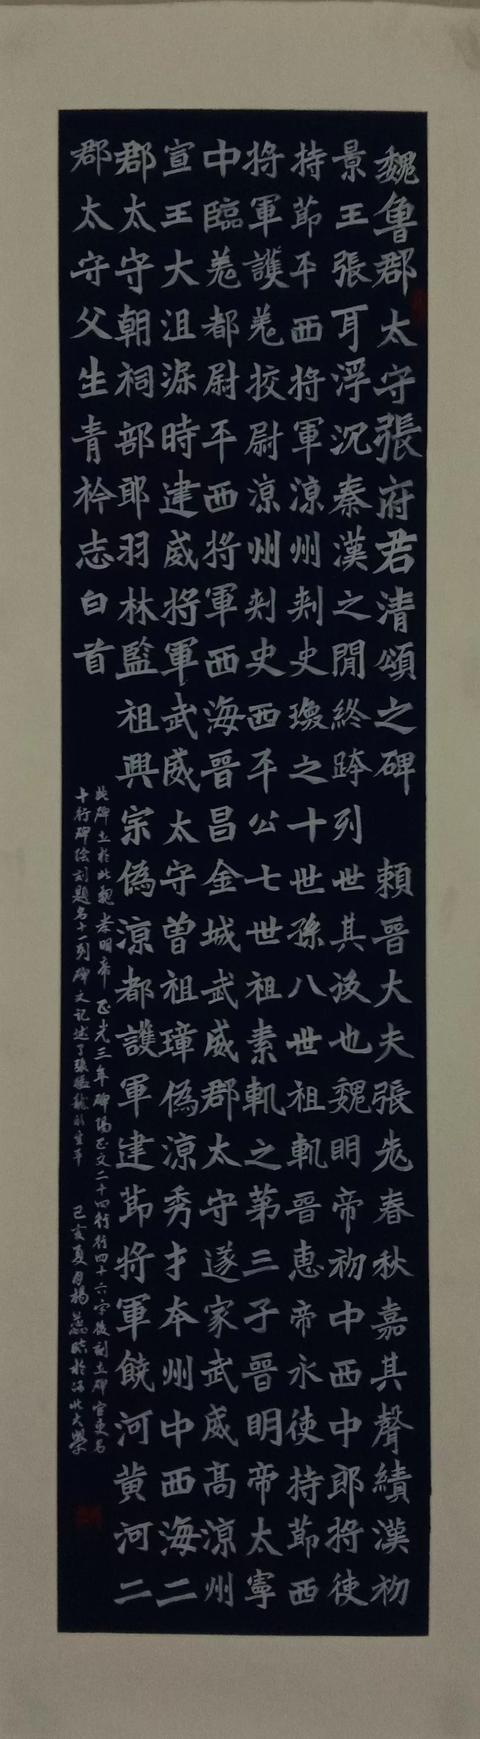 魏魯郡太守張府君清頌之碑 頼晉大夫張老春秋嘉其聲績漢初
景王張耳浮沉秦漢之間終跨列世其後也魏明帝初中西中郎將使
持節平西將軍涼州刺史瓊之十世孫八世祖軌晉惠帝永使持節西
將軍護羌挍尉涼州刾史西平公七世祖素軌之第三子晉明帝太寧
中臨羌都尉平西將軍西海晉昌金城武威郡太守遂家武威高涼州
宣王大沮渠時建威將軍武威太守曽祖璋偽涼秀才本州中西海二
郡太守朝祠部郎羽林監祖興宗偽涼都護軍建節將軍饒河黄河二
郡太守父生青衿志白首
此碑立於北魏孝明帝正光三年碑陽正文二十四行行四十六字後刻立碑官吏名
十行碑陰刻題名十一列碑文記述了張猛龍的生平 己亥夏月楊 臨於河北大學